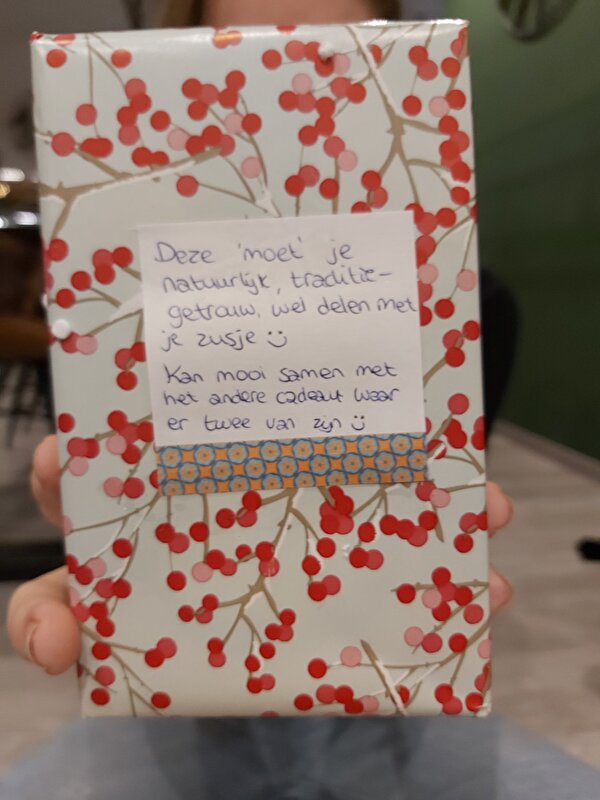 Deze 'moet' je
natuurlijk, traditie-
getrouw, wel delen met
je zusje :)
Kan mooi samen met
het andere cadeau waar
er twee van zijn :)